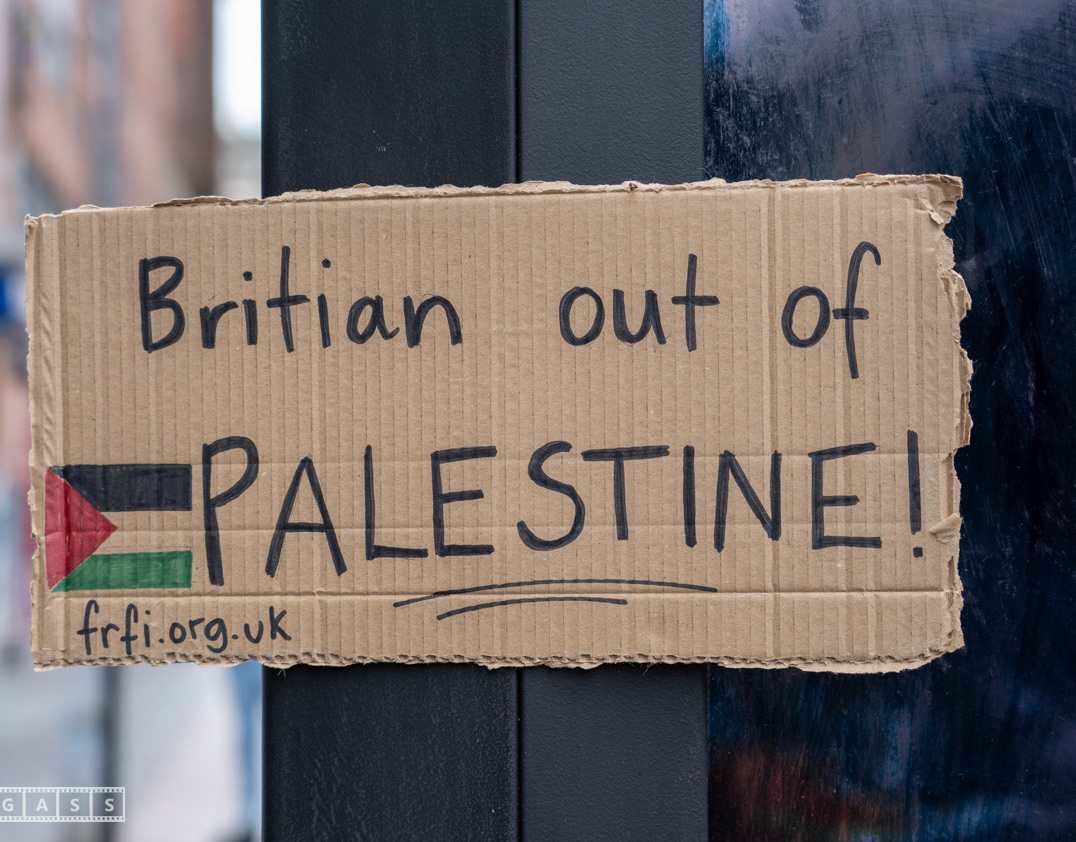 Britian out of
PALESTINE!
frfi.org.uk
GASS